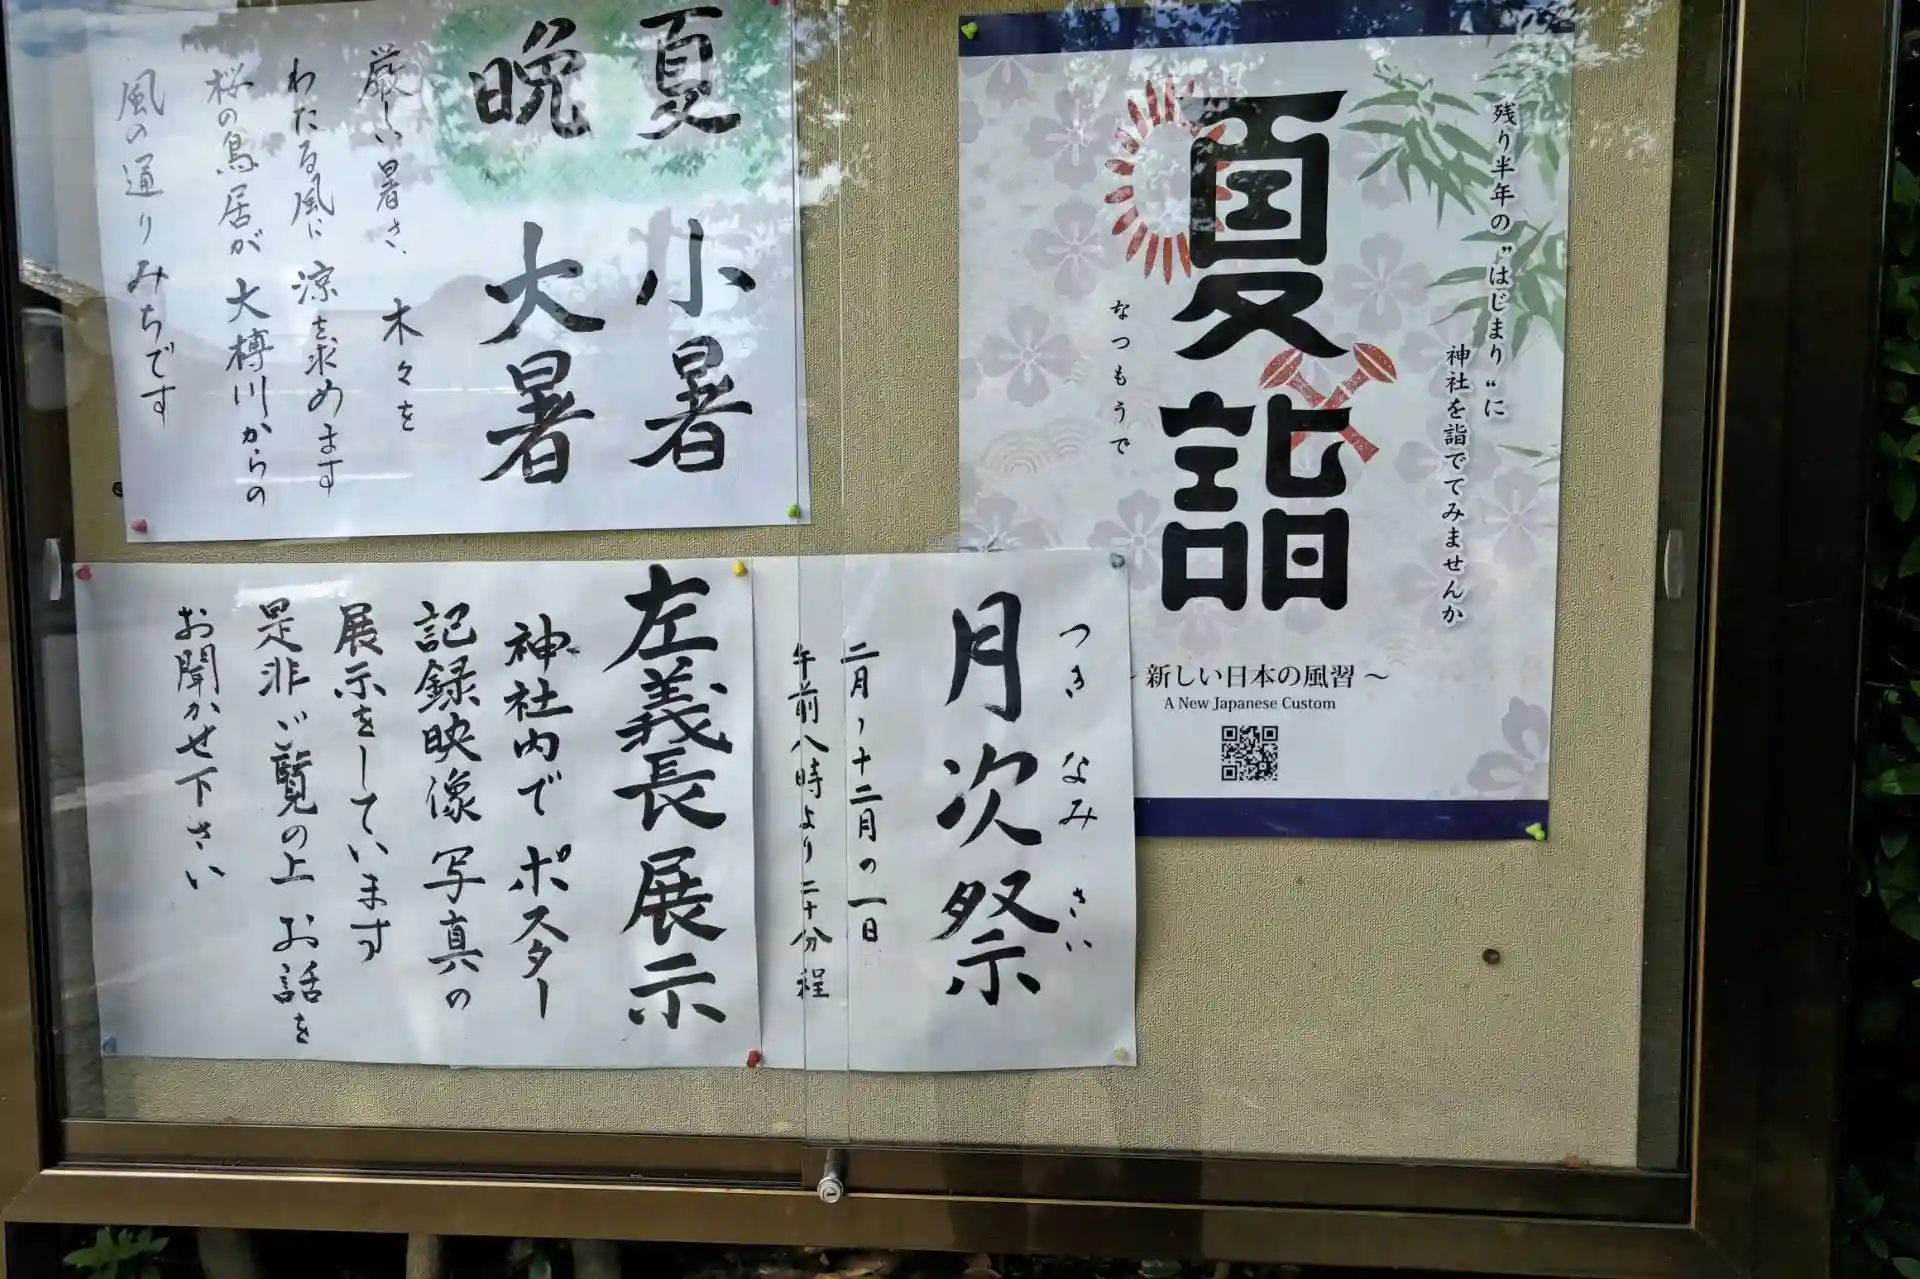 晩夏
小暑
大暑
厳しい暑さ、木々を
わたる風に涼を求めます
桜の鳥居が大榑川からの
風の通りみちです
残り半年の"はじまり"に
神社を詣でてみませんか
夏詣
なつもうで
新しい日本の風習 ～
A New Japanese Custom
つきなみさい
月次祭
二月〜十二月の一日
午前八時より二十分程
左義長展示
神社内でポスター
記録映像 写真の
展示をしています
是非ご覧の上 お話を
お聞かせ下さい